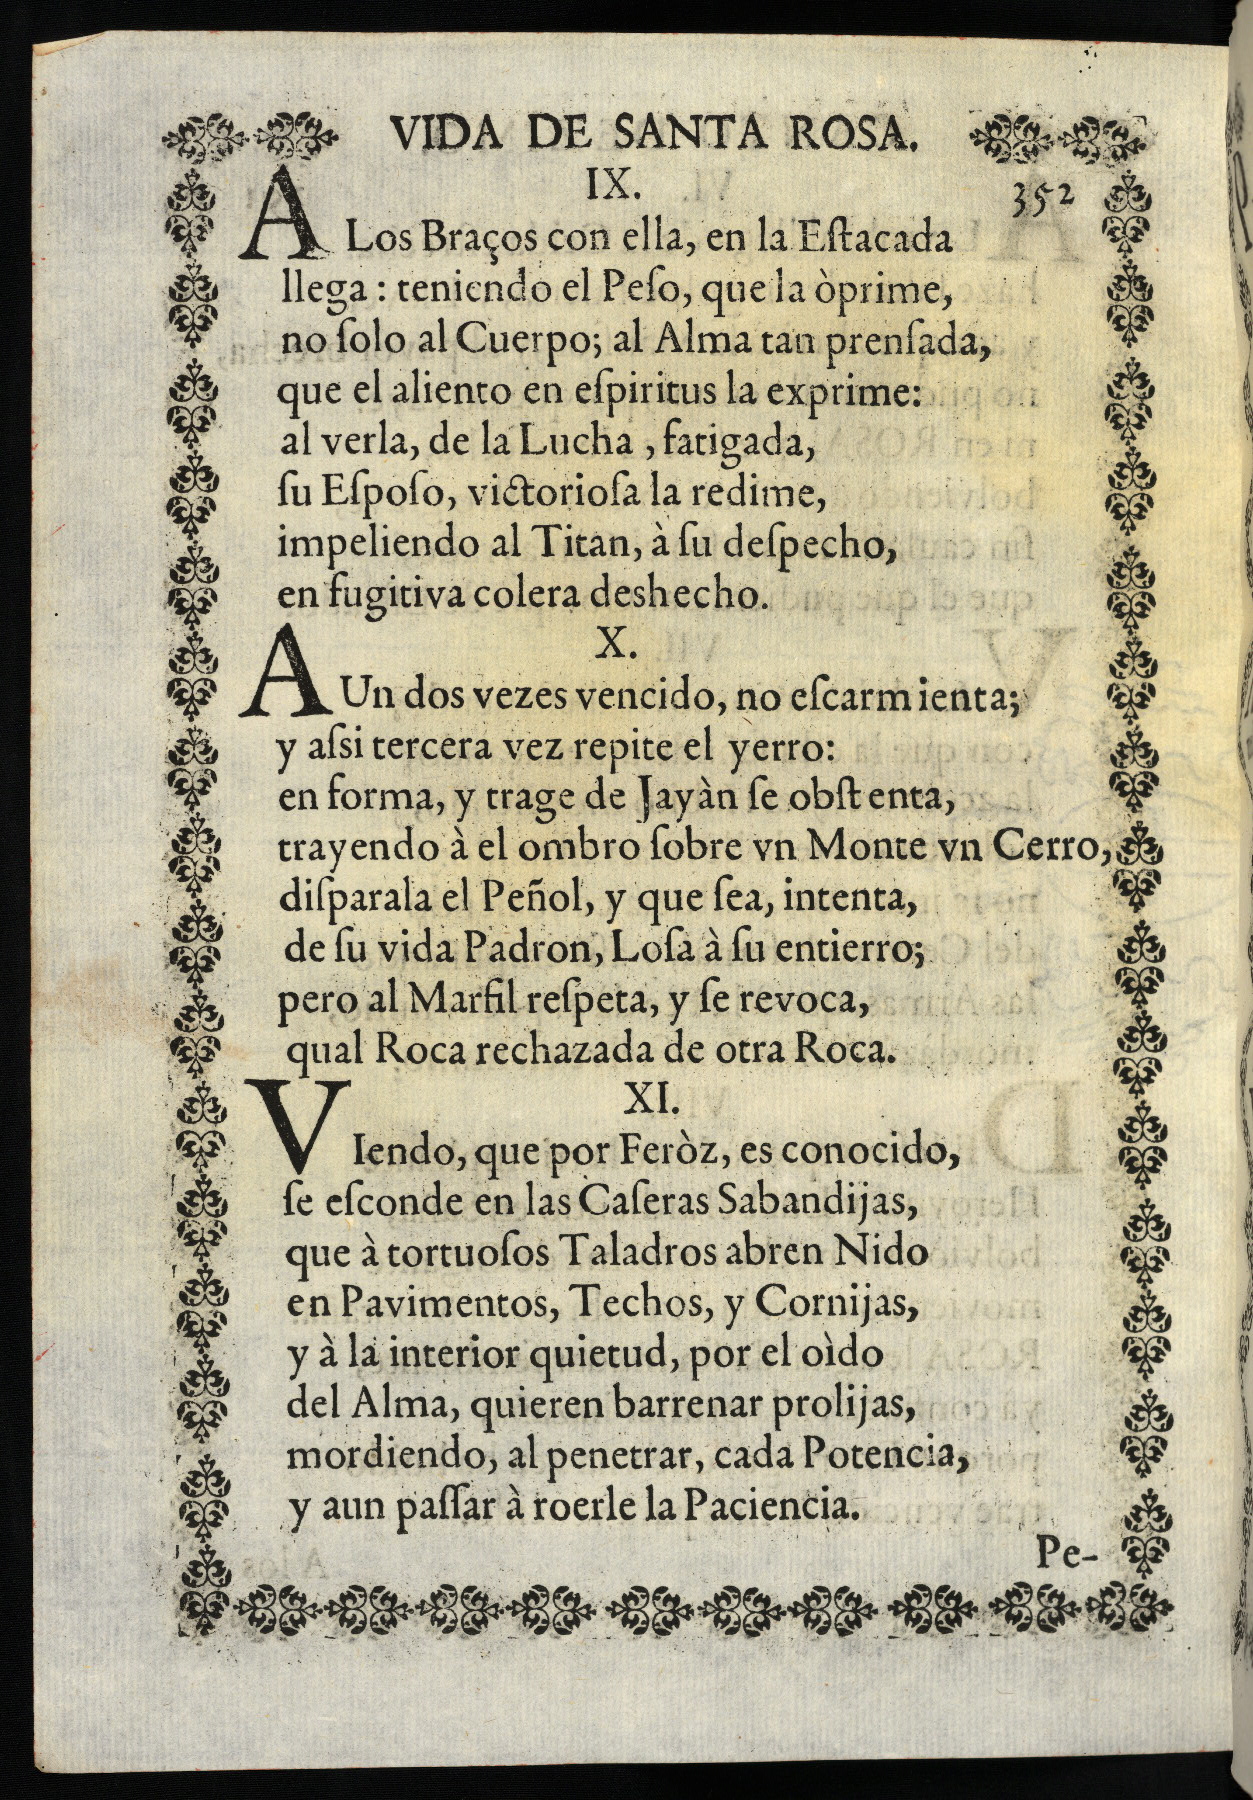 VIDA DE SANTA ROSA.
IX.
352
A Los Braços con ella, en la Eſtacada
llega : teniendo el Peſo, que la òprime,
no ſolo al Cuerpo; al Alma tan prenſada,
que el aliento en eſpiritus la exprime:
al verla, de la Lucha , fatigada,
ſu Eſpoſo, victorioſa la redime,
impeliendo al Titan, à ſu deſpecho,
en fugitiva colera deshecho.
X.
AUn dos vezes vencido, no eſcarmienta;
y aſsi tercera vez repite el yerro:
en forma, y trage de Jayàn ſe obſtenta,
trayendo à el ombro ſobre vn Monte vn Cerro,
diſparala el Peñol, y que ſea, intenta,
de ſu vida Padron, Loſa à ſu entierro;
pero al Marfil reſpeta, y ſe revoca,
qual Roca rechazada de otra Roca.
XI.
VIendo, que por Feròz, es conocido,
ſe eſconde en las Caſeras Sabandijas,
que à tortuoſos Taladros abren Nido
en Pavimentos, Techos, y Cornijas,
y à la interior quietud, por el oìdo
del Alma, quieren barrenar prolijas,
mordiendo, al penetrar, cada Potencia,
y aun paſſar à roerle la Paciencia.
Pe-